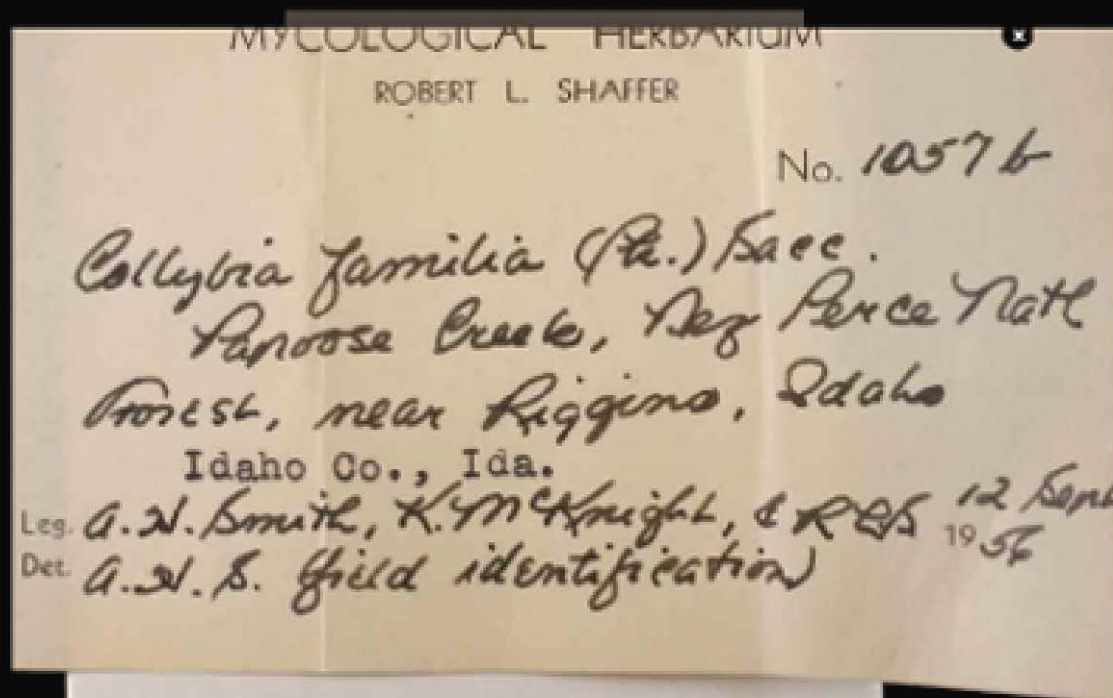 MYCOLOGICAL HERBARIUM
ROBERT L. SHAFFER
No. 1057 b
Collybia familia (Pk.) Sacc.
Papoose Creek, Nez Perce Natl
Forest, near Riggins, Idaho
Idaho Co., Ida.
Leg. A.H. Smith, K. McKnight, & RLS 12 Sept
1956
Det. A.H.S. (field identification)